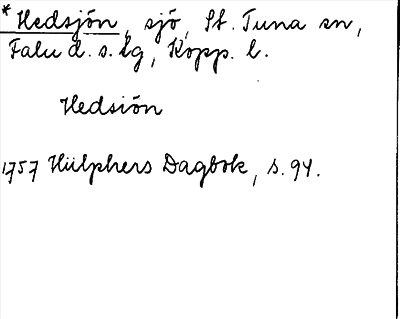 * Hedsjön, sjö, St. Tuna sn,
Falu d. s. lg, Kopp. l.
Hedsiön
1757 Hülphers Dagbok, s. 94.